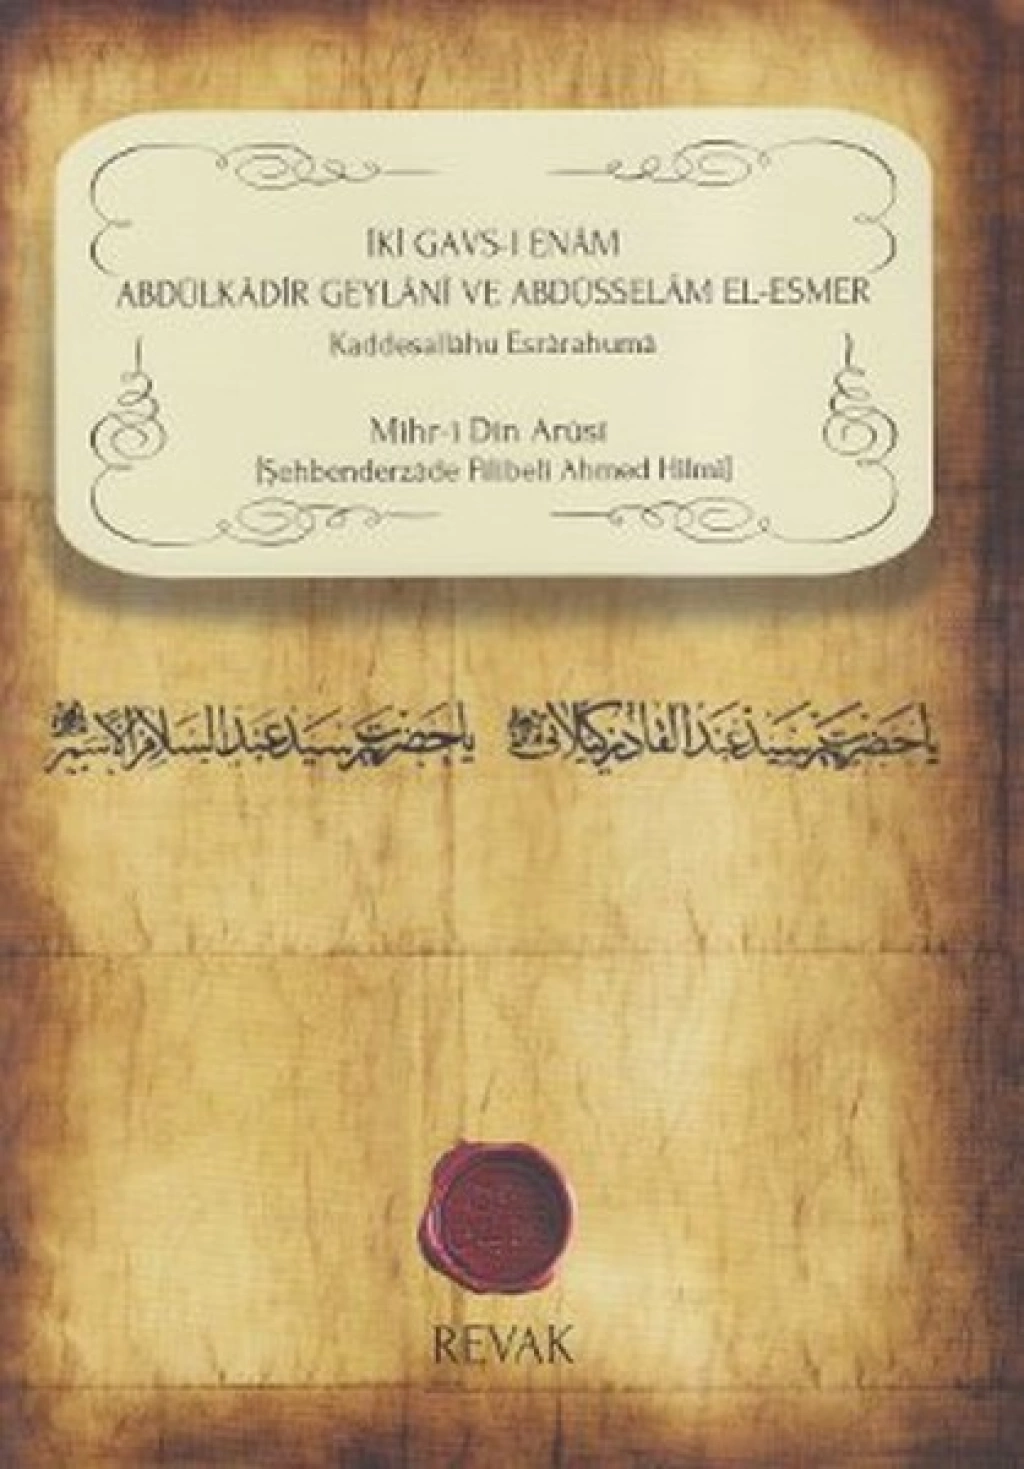 İKİ GAVS-I ENÂM
ABDÜLKÂDİR GEYLÂNÎ VE ABDÜSSELÂM EL-ESMER
Kaddesallâhu Esrârahumâ
Mihr-i Din Arûsî
[Şehbenderzâde Filibeli Ahmed Hilmi]
يا حضرت سيد عبد القادر كيلانى
يا حضرت سيد عبد السلام الاسمر
REVAK